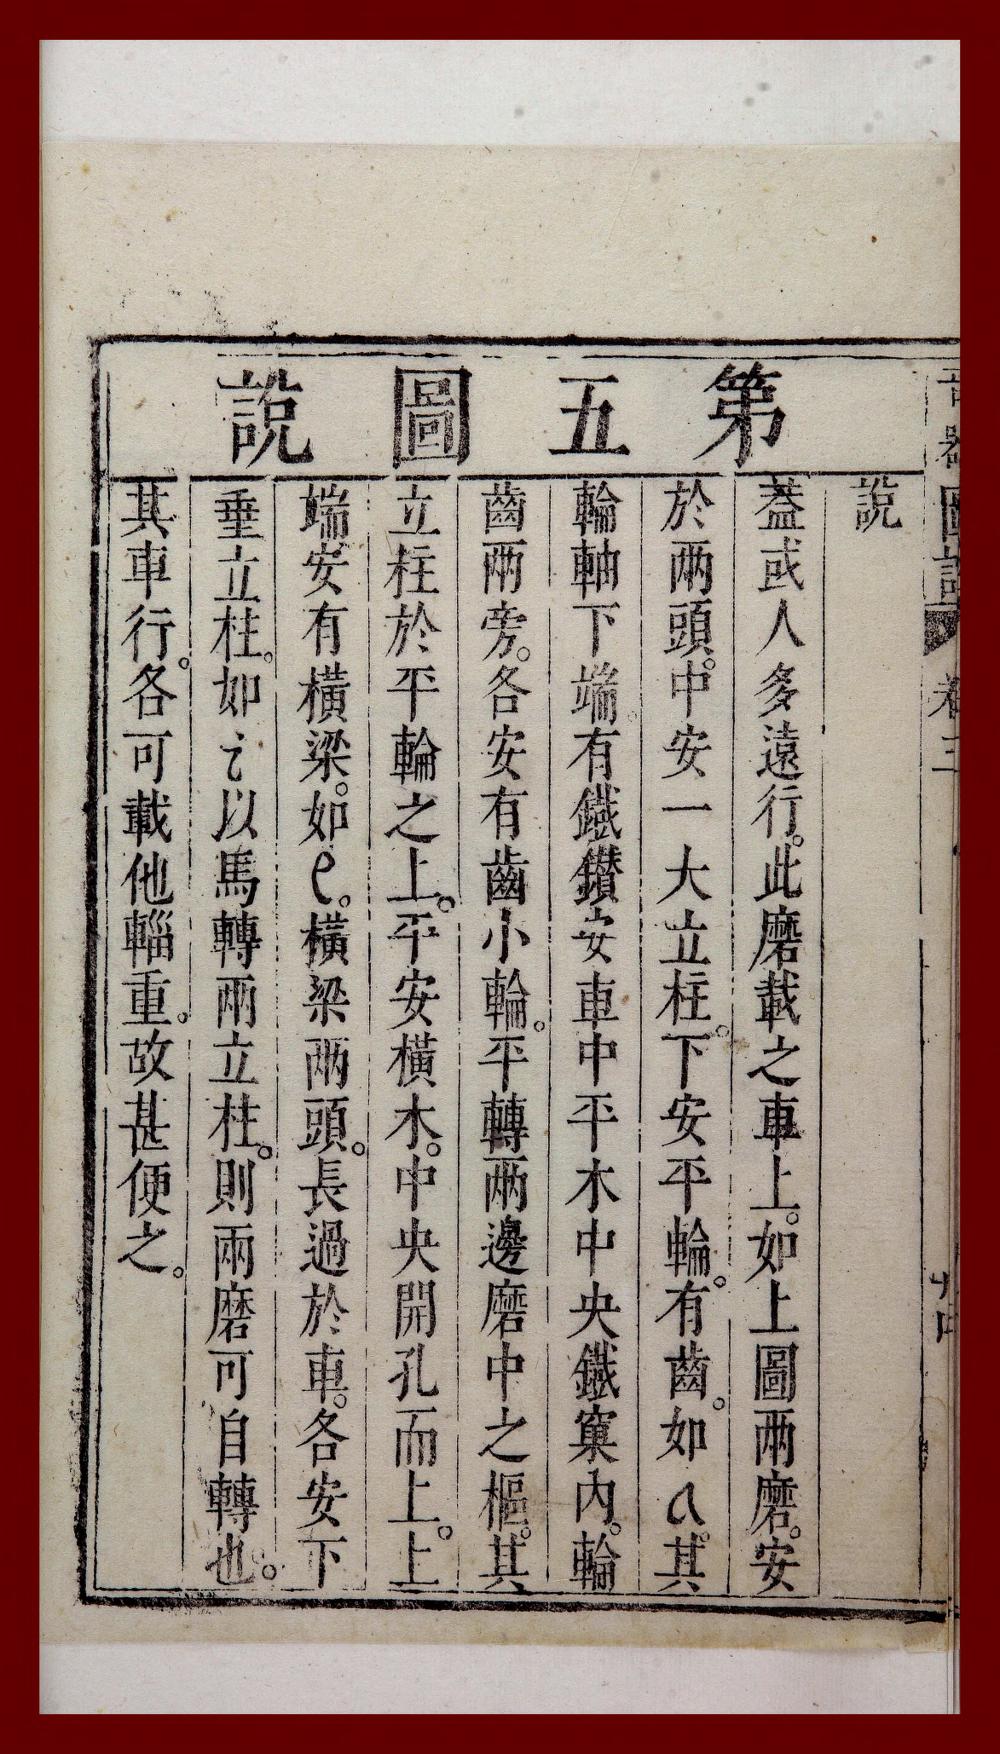 第五圖說
說
蓋或人多遠行。此磨載之車上。如上圖兩磨。安
於兩頭。中安一大立柱。下安平輪。有齒。如a。其
輪軸下端。有鐵鑚安車中平木中央鐵窠內。輪
齒兩旁。各安有齒小輪。平轉兩邊磨中之樞。其
立柱於平輪之上。平安橫木。中央開孔而上。上
端安有橫梁。如e。橫梁兩頭。長過於車。各安下
垂立柱。如i以馬轉兩立柱。則兩磨可自轉也。
其車行。各可載他輜重。故甚便之。
圖說 卷三